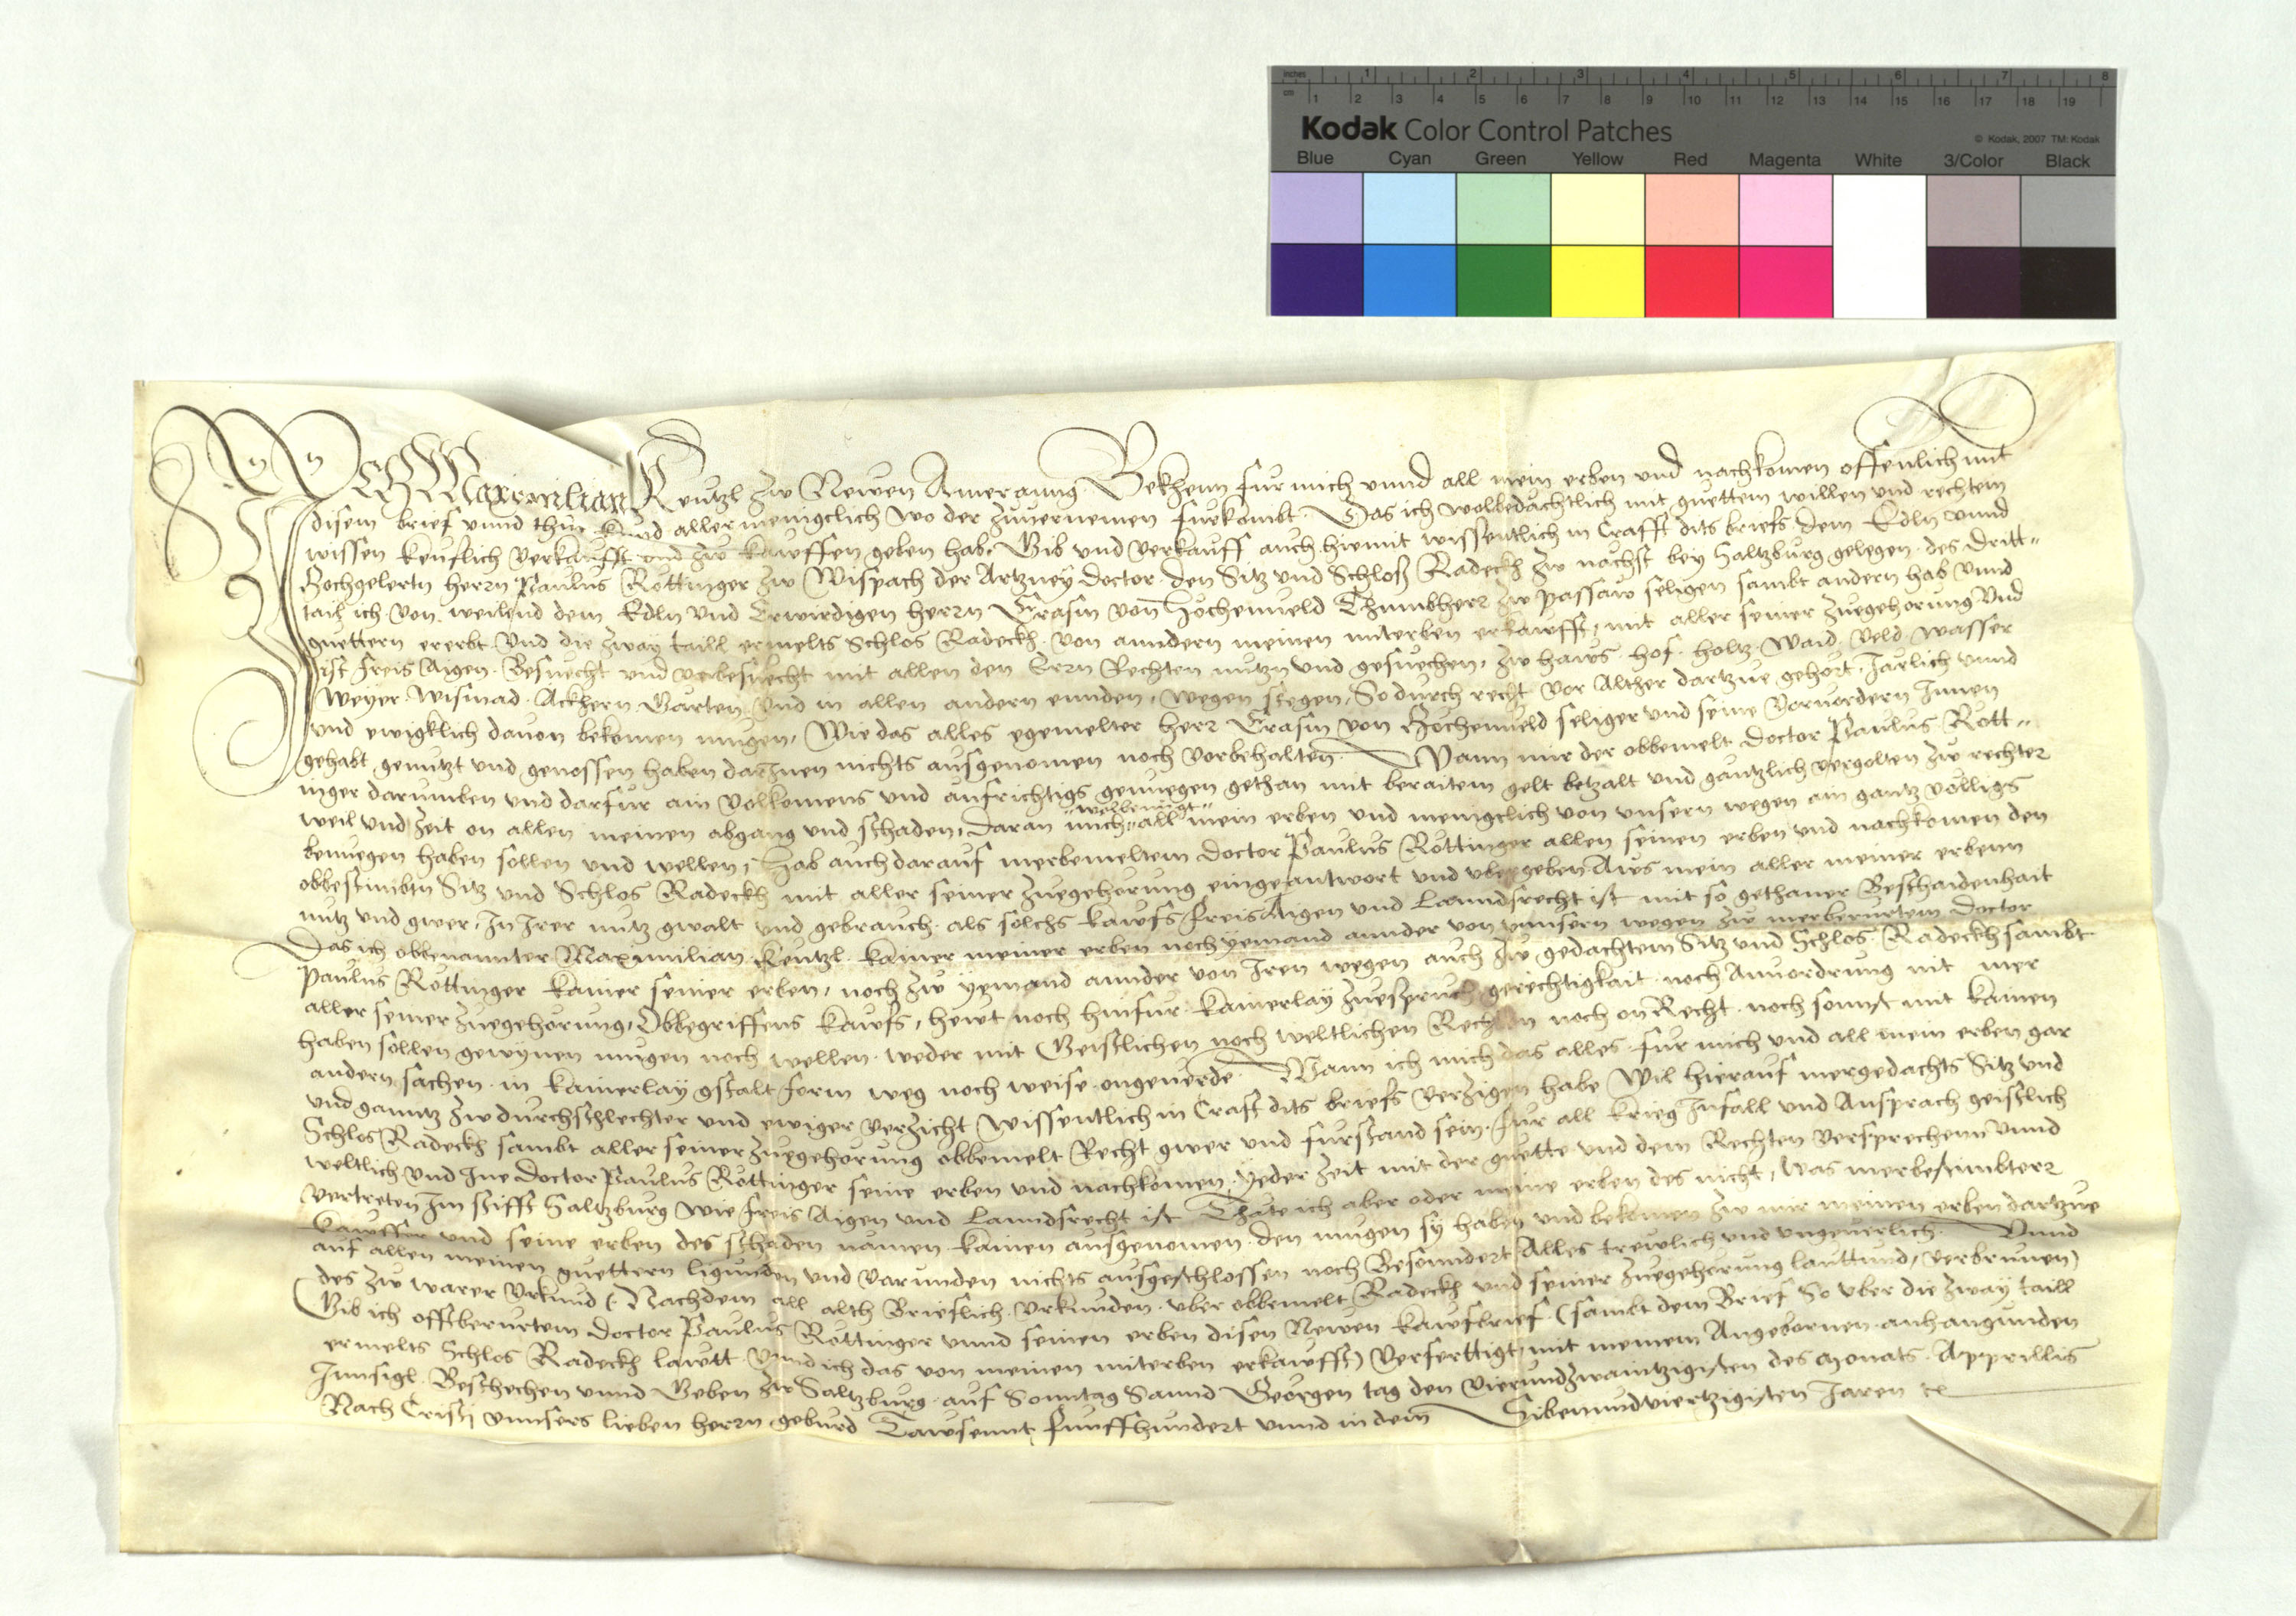 inches 1 2 3 4 5 6 7 8
cm 1 2 3 4 5 6 7 8 9 10 11 12 13 14 15 16 17 18 19
Kodak Color Control Patches © Kodak, 2007 TM: Kodak
Blue Cyan Green Yellow Red Magenta White 3/Color Black
Ich Maximilian Keutzl zw Newen Ameranng Bekhenn für mich vnnd all mein erben vnd nachkomen offenlich mit
disem brief vnnd thue kund allermenigclich wo der zuuernemen fürkombt Das ich wolbedachtlich mit guettem willen vnd rechtem
wissen keuflich verkaufft vnd zw kauffen geben hab, Gib vnd verkauff auch hiemit wissentlich in Crafft dits briefs dem Edln vnnd
Hochgelertn herrn Paulus Röttinger zw Wispach der Artzney Doctor den Sitz vnd Schloss Radeckh zw nachst bey Saltzburg gelegen des Dritt-
tail ich von weilend dem Edln vnd Erwirdigen herrn Erasm von Hochenueld Thumbherr zw passaw seligen sambt andern hab vnnd
guettern ererbt vnd die zway taill ermelts Schlos Radeckh von anndern meinen miterben erkaufft, mit aller seiner zuegehorung vnd
ist freis Aigen Besuecht vnd vnbesuecht mit allen den Eern Rechten nutzn vnd gesuechen, zw haus hof holtz Waid veld wasser
Weyer Wismad Ackhern Garten vnd in allen andern ennden, wegen stegen, So durch recht vor Alther dartzue gehört, Jarlich vnnd
vnd ewigklich dauon bekomen mugen, Wie das alles egemelter herr Erasm von Hochenueld seliger vnd seine Voruordern Innen
gehabt genutzt vnd genossen haben darInnen nichts ausgenomen noch vorbehalten Wann mir der obbemelt Doctor Paulus Rött-
inger darumben vnd darfür ain volkomens vnd aufrichtigs genuegen gethan mit beraitem gelt betzalt vnd gantzlich vergolten zw rechter
weil vnd zeit on allen meinen abgang vnd schaden, daran mich all mein erben vnd menigclich von vnsern wegen ain gantz völligs
benuegen haben sollen vnd wellen, Hab auch darauf merbemeltem Doctor Paulus Röttinger allen seinen erben vnd nachkomen den
obbestimbtn Sitz vnd Schlos Radeckh mit aller seiner zuegehorung eingeantwort vnd vbergeben Aus mein aller meiner erbenn
nutz vnd gwer, In Irer nutz gwalt vnd gebrauch als solchs kaufs freis Aigen vnd Lanndsrecht ist mit so gethaner Beschaidenhait
Das ich obbenannter Maximilian Keutzl kainer meiner erben noch yemand annder von vnnsern wegen zw merberürtem Doctor
Paulus Röttinger kainer seiner erben, noch zw yemand annder von Iren wegen auch zw gedachtem Sitz vnd Schlos Radeckh sambt
aller seiner zuegehorung, Obbegriffens kaufs, hewt noch hinfür kainerlay zuespruch gerechtigkait noch Anuordrung nit mer
haben sollen gewynen mugen noch wellen weder mit Geistlichen noch weltlichen Rechten noch on Recht noch sonnst mit kainen
andern sachen in kainerlay gstalt form weg noch weise ongeuerde Wann ich mich das alles für mich vnd all mein erben gar
vnd ganntz zw durchschlechter vnd ewiger verzicht Wissentlich in Craft dits briefs verzigen habe Wil hierauf mergedachts Sitz vnd
Schlos Radeckh sambt aller seiner zuegehorung obbemelt Recht gwer vnd fürstand sein für all krieg Infall vnd Ansprach geistlich
weltlich vnd Ine Doctor Paulus Röttinger seine erben vnd nachkomen, yeder zeit mit der guette vnd dem Rechten versprechenn vnnd
vertreten Im stifft Saltzburg wie freis Aigen vnd Lanndsrecht ist Thäte ich aber oder meine erben des nicht, Was merbestimbter
kauffer vnd seine erben des schaden namen kainen ausgenomen den mugen sy haben vnd bekomen zw mir meinen erben dartzue
auf allen meinen guettern ligunden vnd varunden nichts ausgeschlossen noch Besonndert Alles trewlich vnd vngeuerlich Vnnd
des zw warer Vrkund (Nachdem all alth Brieflich Vrkunden vber obbemelt Radeckh vnd seiner zuegehorung lauttund, verbrunen)
Gib ich offtberürtem Doctor Paulus Röttinger vnnd seinen erben disen Newen kaufbrief (sambt dem Brief So vber die zway taill
ermelts Schlos Radeckh lautt vnnd ich das von meinen miterben erkaufft) verferttigt mit meinem Angebornen anhangunden
Innsigl Beschechen vnnd Geben zw Saltzburg auf Sonntag Sannd Georgen tag den vierundzwaintzigisten des Monats Apprillis
Nach Cristi vnnsers lieben herrn geburd Tausennt funffhundert vnnd in dem Sibenundviertzigisten Jaren